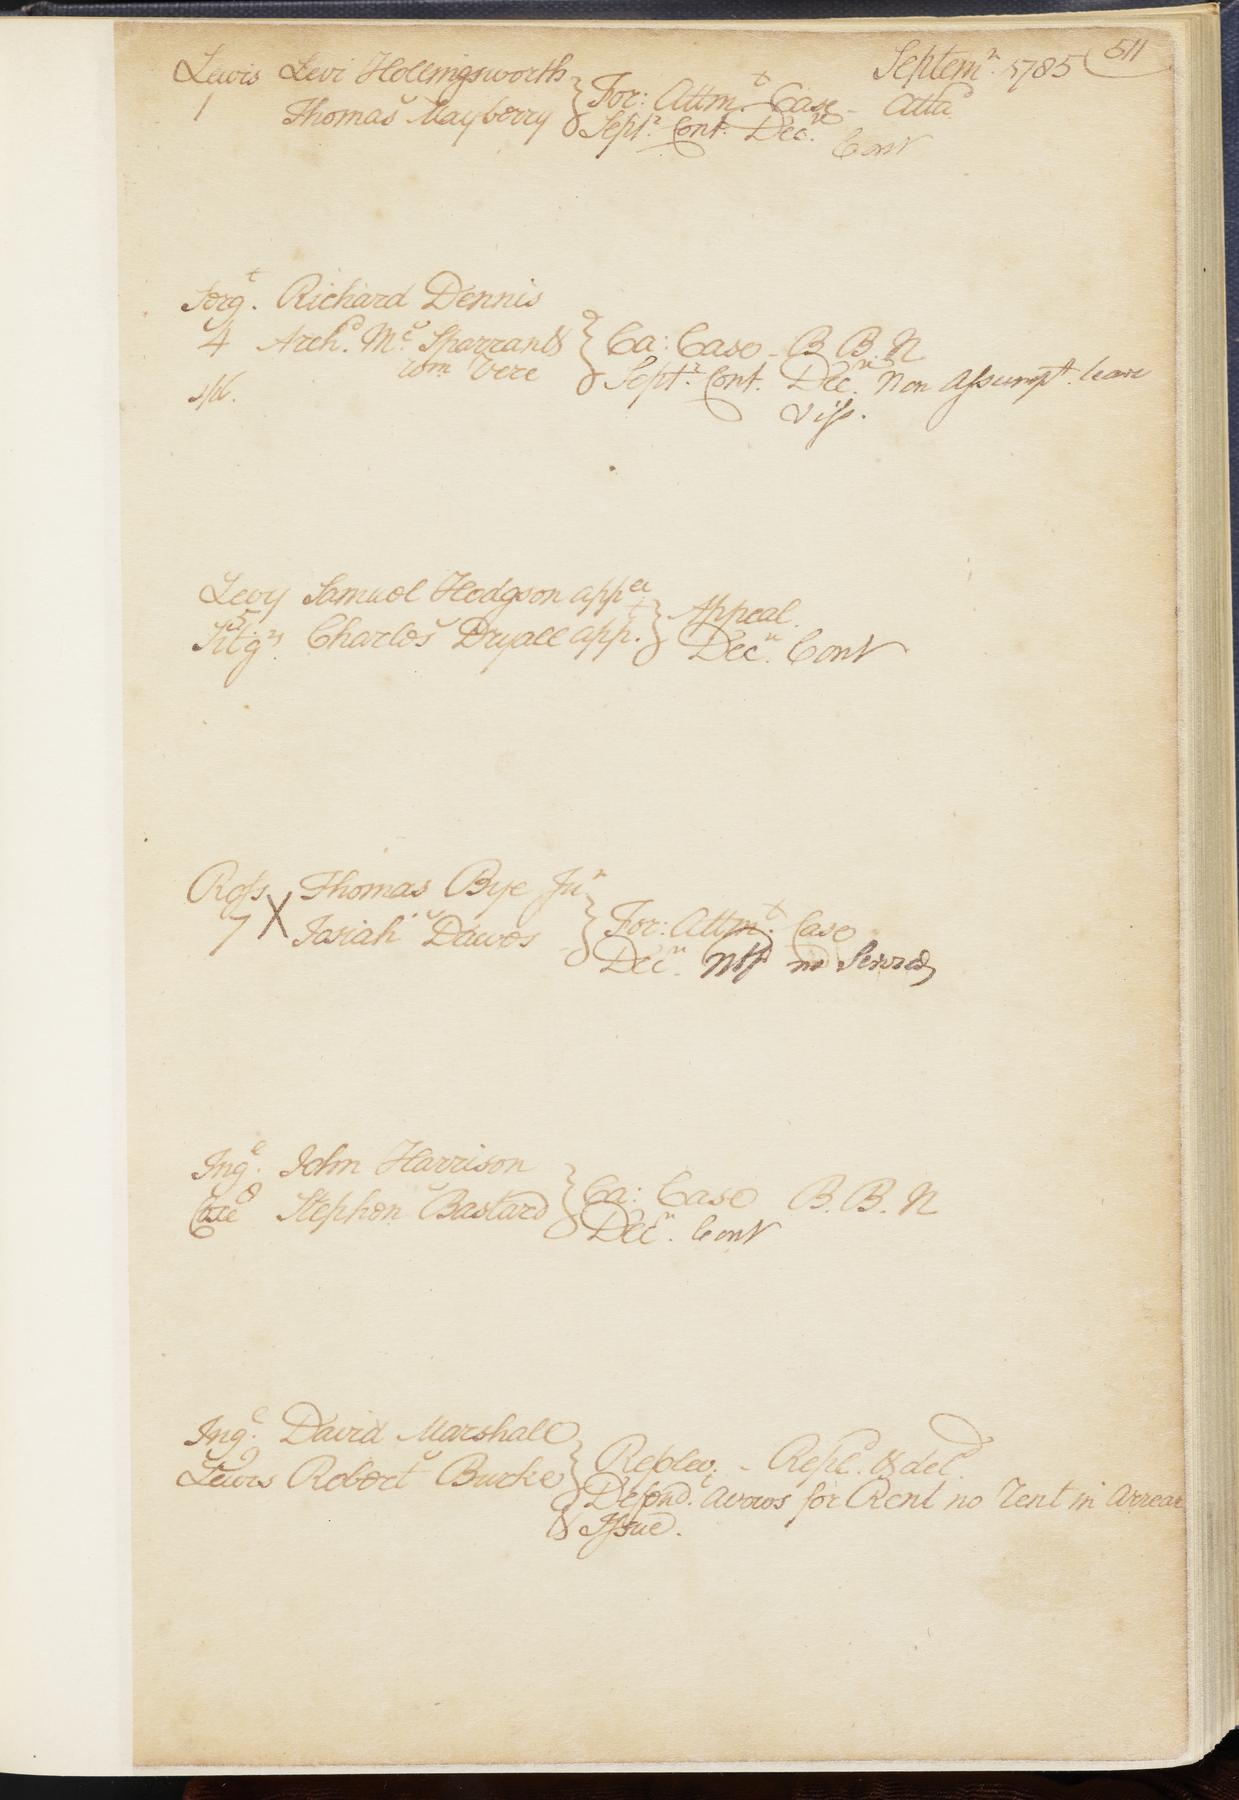 Septemr. 1785 511
Lewis Levi Hollingsworth
1 Thomas Mayberry
For: Attmt. Case - Attad
Septr. Cont. Decr. Cont
Sergt. Richard Dennis
4 Archd. Mc. Sparran &
com Vere
Ca: Case - B. B. N
Septr. Cont. Decr. Non Assumpt. leave
Viss.
Levy Samuel Hodgson appee
5
Charles Dryall appt.
Appeal.
Decr. Cont
Ross Thomas Bye Junr
7 X Josiah Dawes
For: Attmt. Case
Decr. not Served
Inge. John Harrison
8
Coxe Stephen Bastard
Ca: Case B. B. N
Decr. Cont
Inge. David Marshall
9
Lewis Robert Burke
Replev. - Repld. & deld.
Defendt. avows for Rent no Rent in Arrear
& Issue.